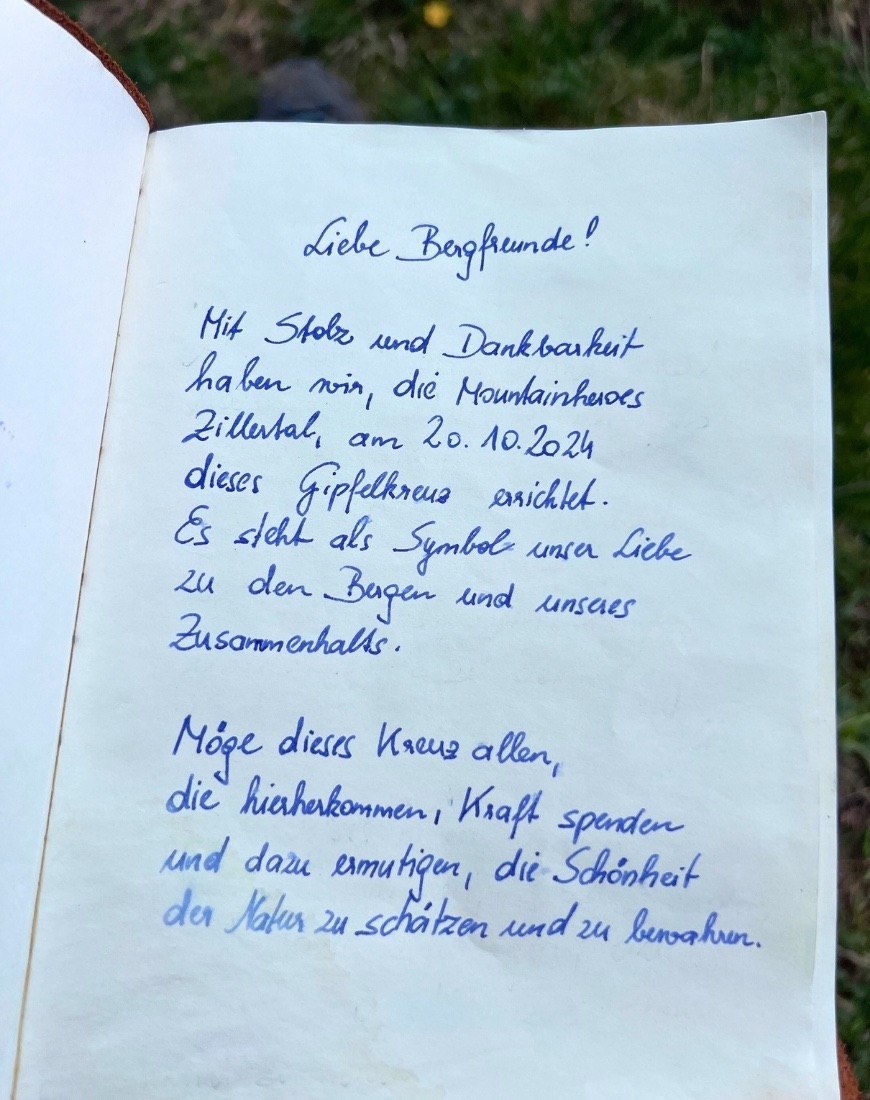 Liebe Bergfreunde!
Mit Stolz und Dankbarkeit
haben wir, die Mountainheroes
Zillertal, am 20.10.2024
dieses Gipfelkreuz errichtet.
Es steht als Symbol unser Liebe
zu den Bergen und unseres
Zusammenhalts.
Möge dieses Kreuz allen,
die hierherkommen, Kraft spenden
und dazu ermutigen, die Schönheit
der Natur zu schätzen und zu bewahren.